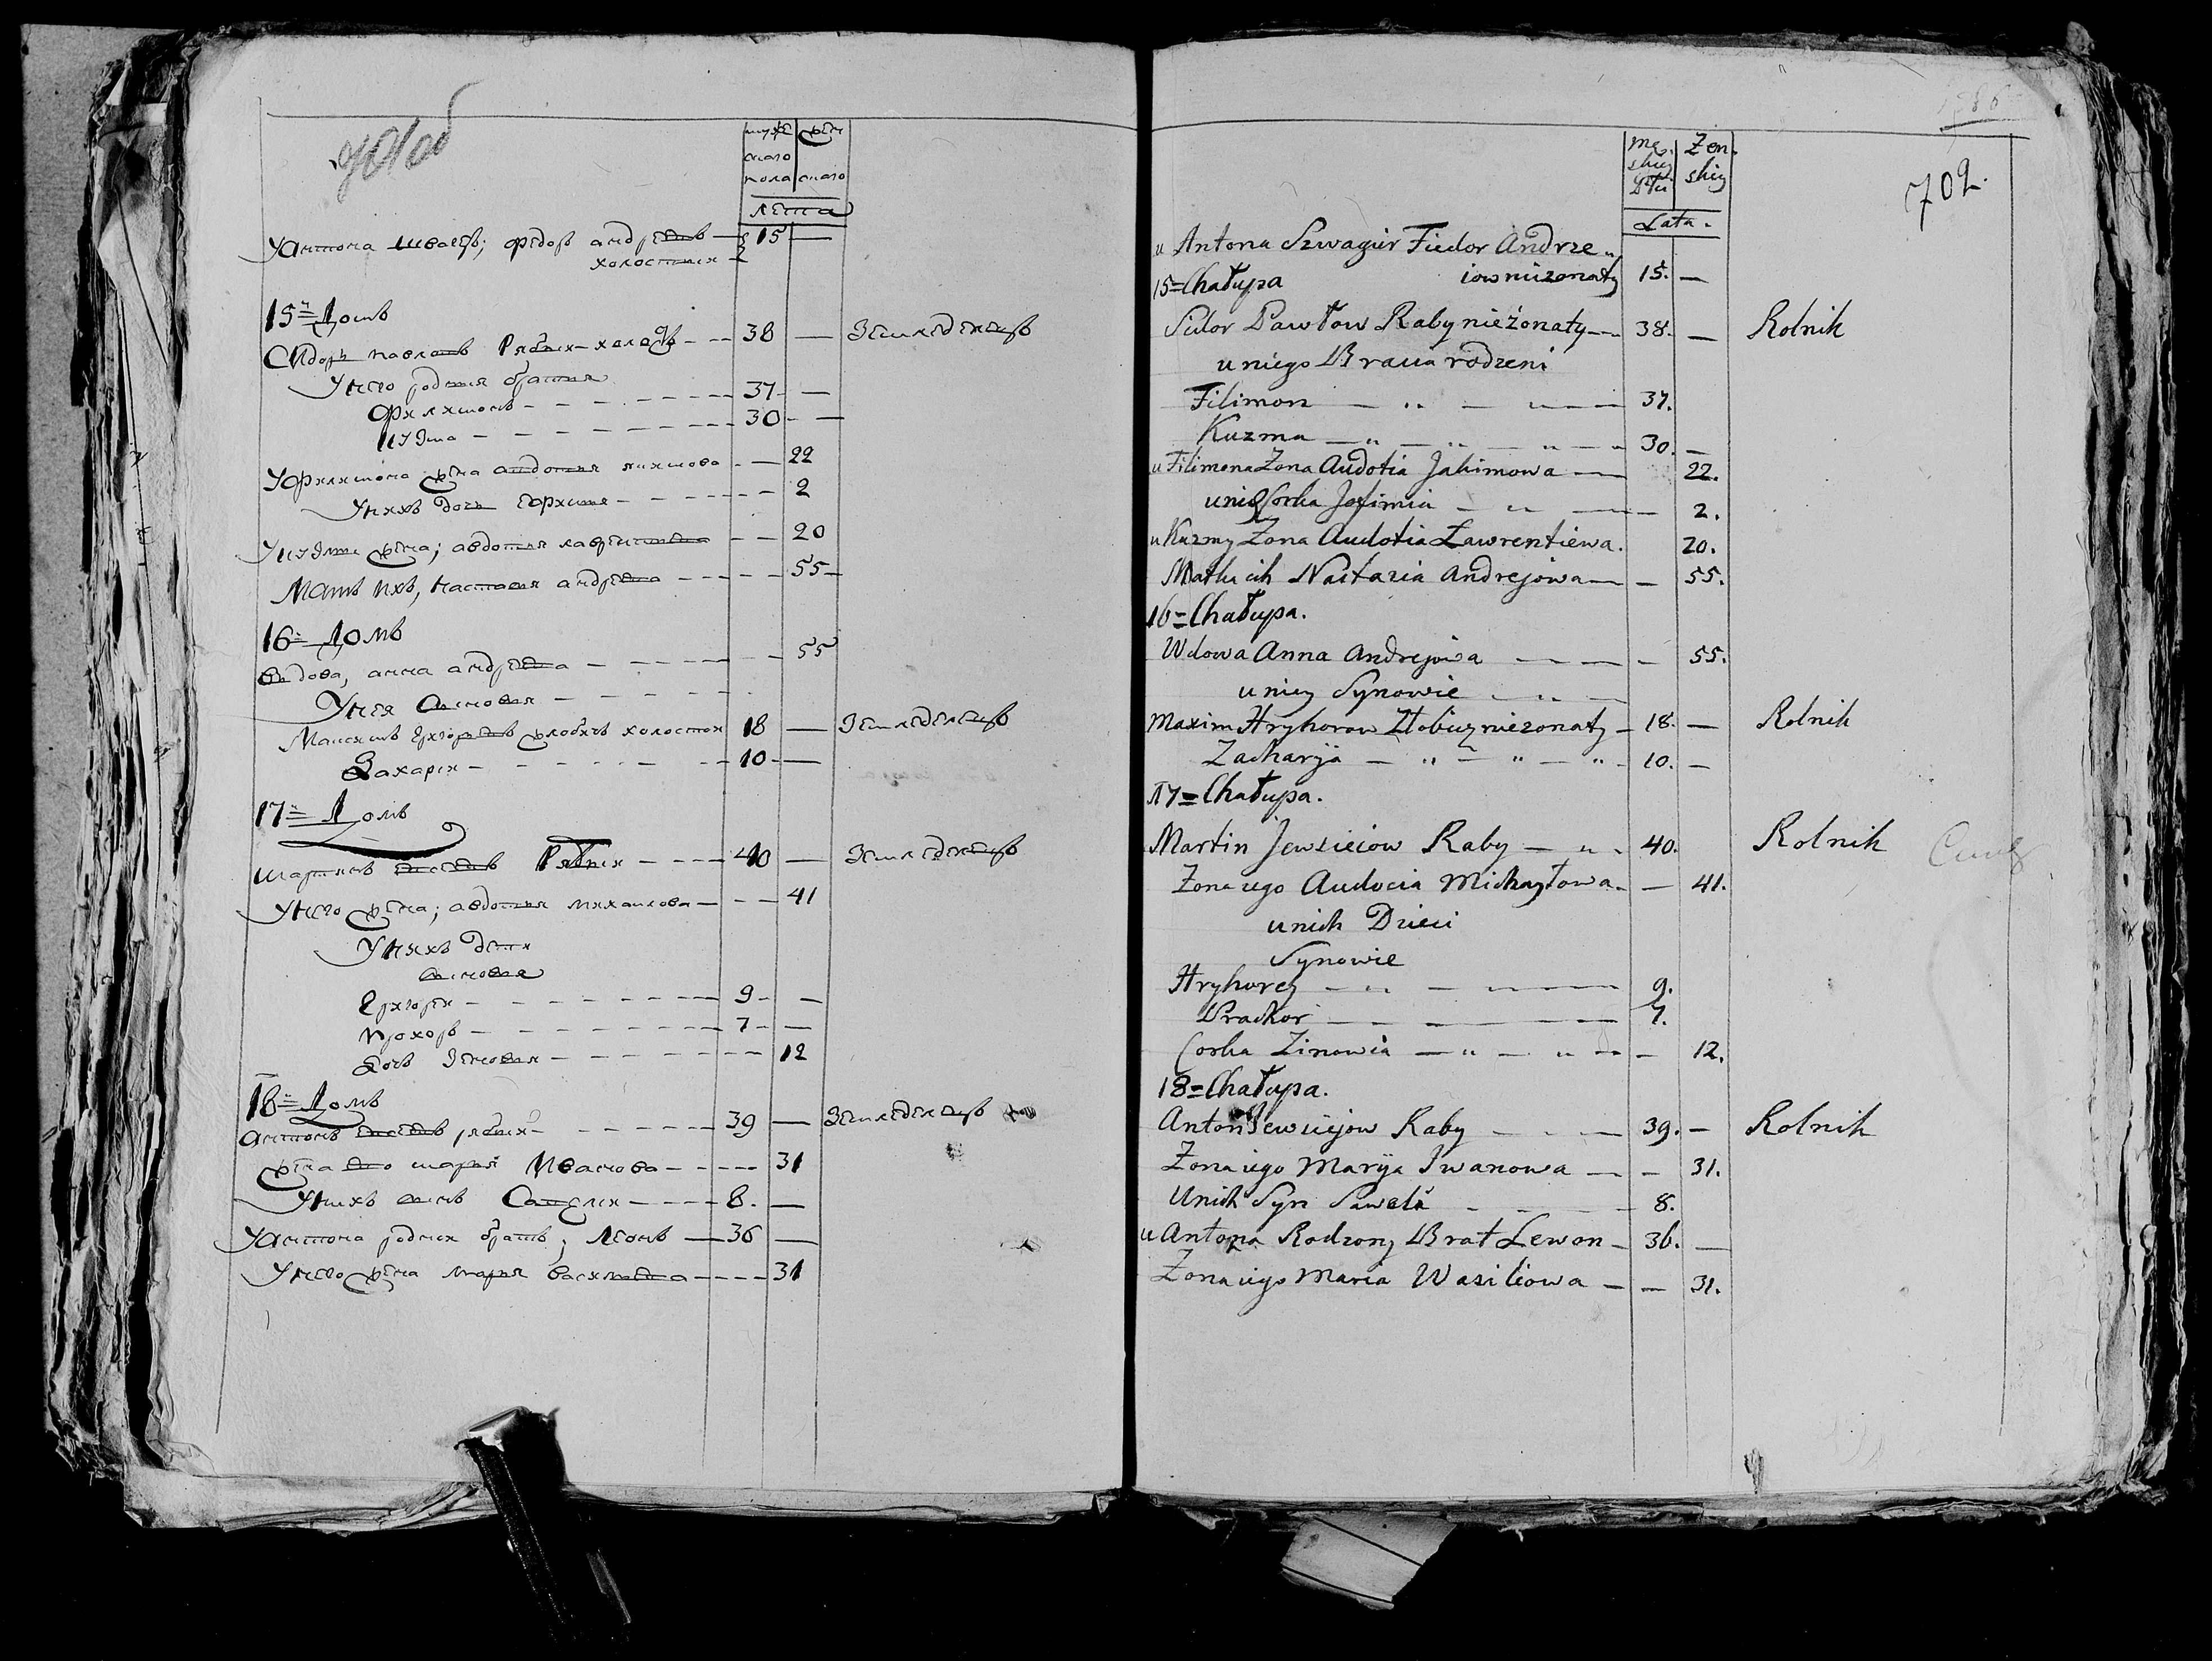 701 об
мужескаго пола
женскаго
лета
У Антона швагеръ; Федоръ андреевъ 15 —
холостыи
15й Домъ
Сидоръ павловъ Рябыи холостъ 38 — Земледелецъ
У него родныя братья
Филимонъ 37 —
кузма 30 —
У Филимона жена авдотья якимова — 22
У нихъ дочь Ефимия 2
У кузмы жена; авдотья лаврентьева 20
Мать ихъ, настасья андреева 55
16й Домъ
Вдова, анна андреева 55
У нея сыновья
Максимъ григорьевъ жлобичъ холостои 18 — Земледелецъ
Захарии 10 —
17й Домъ
мартинъ евсеевъ Рябыи 40 — Земледелецъ
У него жена; авдотья михаилова — 41
У нихъ дети
сыновья
Григореи 9 —
прохоръ 7 —
Дочь Зеновия 12
18й Домъ
антонъ евсеевъ рябыи 39 — Земледелецъ
жена ево марья Иванова 31
У нихъ сынъ Савелеи 8. —
У Антона роднои братъ; Леонъ 36 —
У него жена марья васильева 31
702.
męskiey Płci
Żenskiey
Lata.
u Antona Szwagier Fiedor Andrze„
15=Chałupa iow nieżonaty 15. —
Sidor Pawłow Raby nieżonaty 38. — Rolnik
u niego Bracia rodzeni
Filimon 37.
Kuzma 30. —
u Filimona Żona Audotia Jakimowa 22.
u nich Corka Jefimia 2.
u Kuzmy Żona Audotia Ławrentiewa. 20.
Matka ich Nastazia Andrejowa — 55.
16=Chałupa.
Wdowa Anna Andrejowa — 55.
u niey Synowie
Maxim Hryhorow Żłobicz nieżonaty 18. — Rolnik
Zacharyia 10. —
17=Chałupa.
Martin Jewsieiow Raby 40. Rolnik
Żona iego Audocia Michayłowa. — 41.
u nich Dzieci
Synowie
Hryhorey 9.
Prachor 7.
Corka Zinowia — 12.
18=Chałupa.
Anton Jewsiejow Raby 39. — Rolnik
Żona iego Maryja Iwanowa — 31.
U nich Syn Sawela 8.
u Antona Rodzony Brat Lewon 36. —
Żona iego Maria Wasiliowa — 31.